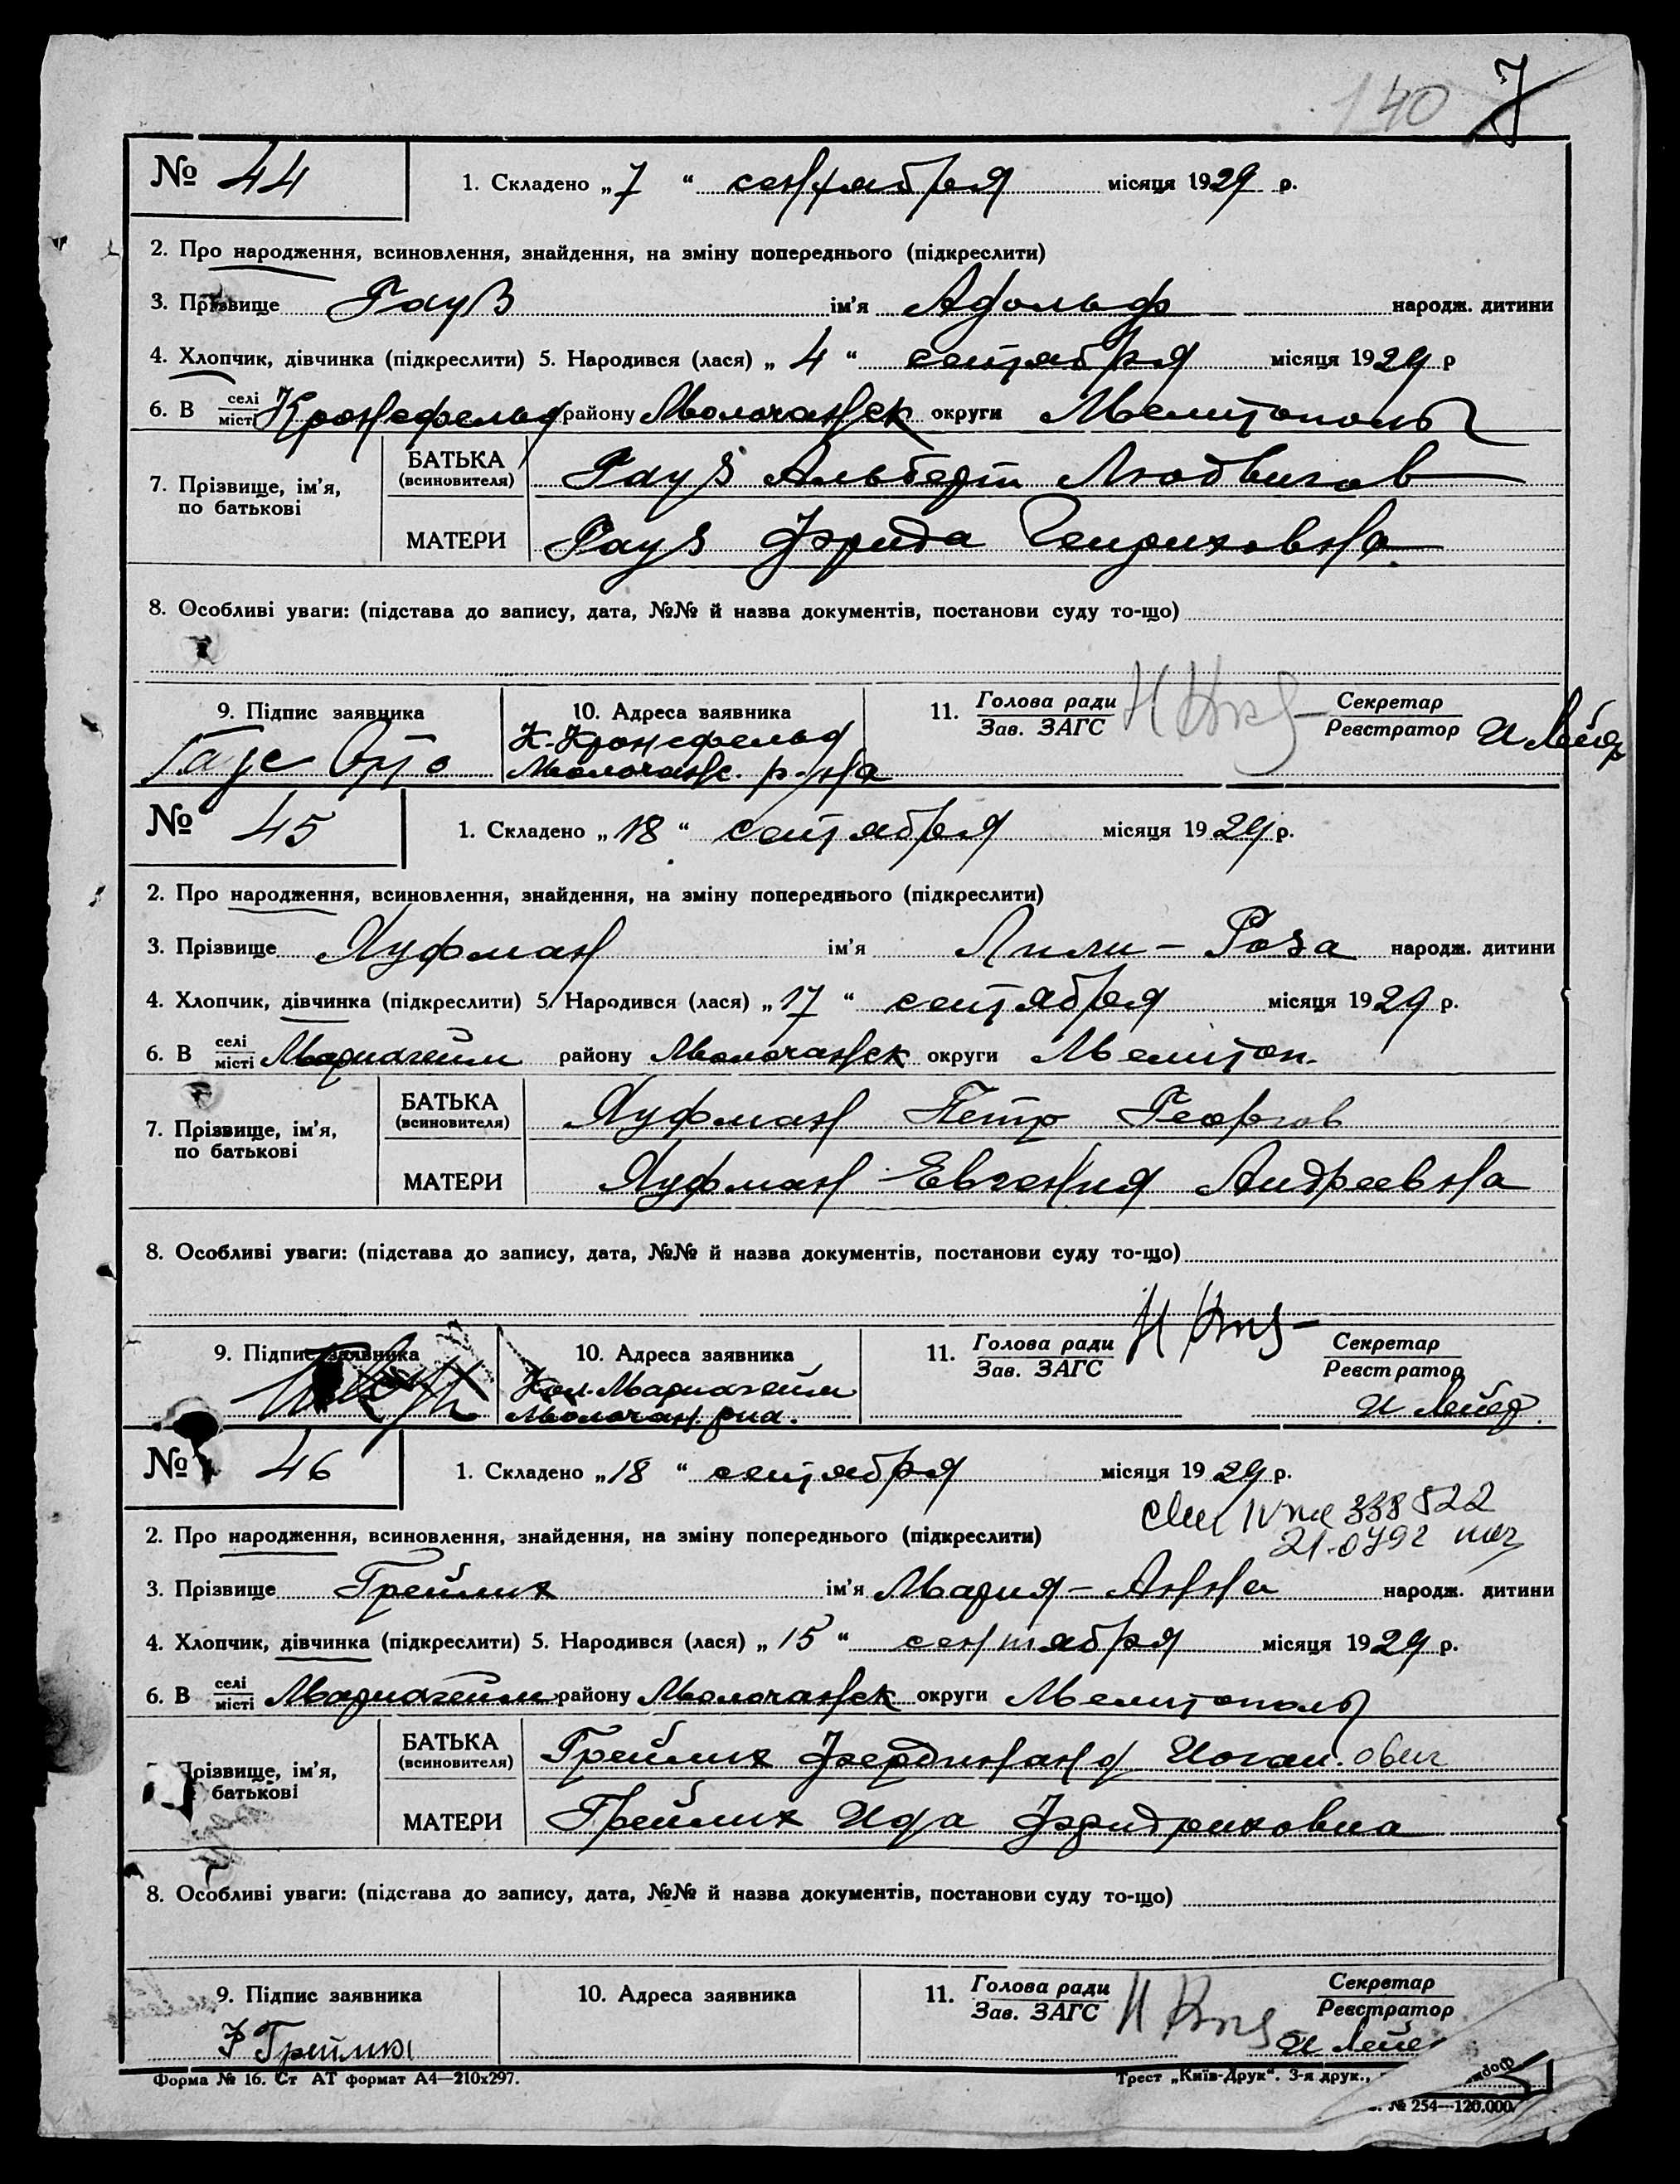 140 7
№ 44 1. Складено „7“ сентября місяця 1929 р.
2. Про народження, всиновлення, знайдення, на зміну попереднього (підкреслити)
3. Прізвище Гауз ім’я Адольф народж. дитини
4. Хлопчик, дівчинка (підкреслити) 5. Народився (лася) „4“ сентября місяця 1929 р
6. В селі/місті Кронсфельд району Молочанск округи Мелитополь
7. Прізвище, ім’я, по батькові
БАТЬКА (всиновителя) Гауз Альберт Людвигов
МАТЕРИ Гауз Фрида Генриховна
8. Особливі уваги: (підстава до запису, дата, №№ й назва документів, постанови суду то-що)
9. Підпис заявника 10. Адреса заявника 11. Голова ради/Зав. ЗАГС Секретар/Реєстратор
К-Кронсфельд
Молочанс. р-на
№ 45 1. Складено „18“ сентября місяця 1929 р.
2. Про народження, всиновлення, знайдення, на зміну попереднього (підкреслити)
3. Прізвище Хуфман ім’я Лили-Роза народж. дитини
4. Хлопчик, дівчинка (підкреслити) 5. Народився (лася) „17“ сентября місяця 1929 р.
6. В селі/місті Мариагейм району Молочанск округи Мелитоп.
7. Прізвище, ім’я, по батькові
БАТЬКА (всиновителя) Хуфман Петр Георгов
МАТЕРИ Хуфман Евгения Андреевна
8. Особливі уваги: (підстава до запису, дата, №№ й назва документів, постанови суду то-що)
9. Підпис заявника 10. Адреса заявника 11. Голова ради/Зав. ЗАГС Секретар/Реєстратор
Кол. Мариагейм
Молочан. рна. И Лейер
№ 46 1. Складено „18“ сентября місяця 1929 р.
338522
2. Про народження, всиновлення, знайдення, на зміну попереднього (підкреслити)
3. Прізвище Грейлих ім’я Мария-Анна народж. дитини
4. Хлопчик, дівчинка (підкреслити) 5. Народився (лася) „15“ сентября місяця 1929 р.
6. В селі/місті Мариагейм району Молочанск округи Мелитополь
Прізвище, ім’я, батькові
БАТЬКА (всиновителя) Грейлих Фердинанд Иоган.ович
МАТЕРИ Грейлих Ида Фридриховна
8. Особливі уваги: (підстава до запису, дата, №№ й назва документів, постанови суду то-що)
9. Підпис заявника 10. Адреса заявника 11. Голова ради/Зав. ЗАГС Секретар/Реєстратор
Форма № 16. Ст АТ формат А4—210x297. Трест „Київ-Друк“. 3-я друк.,
№ 254—120.000